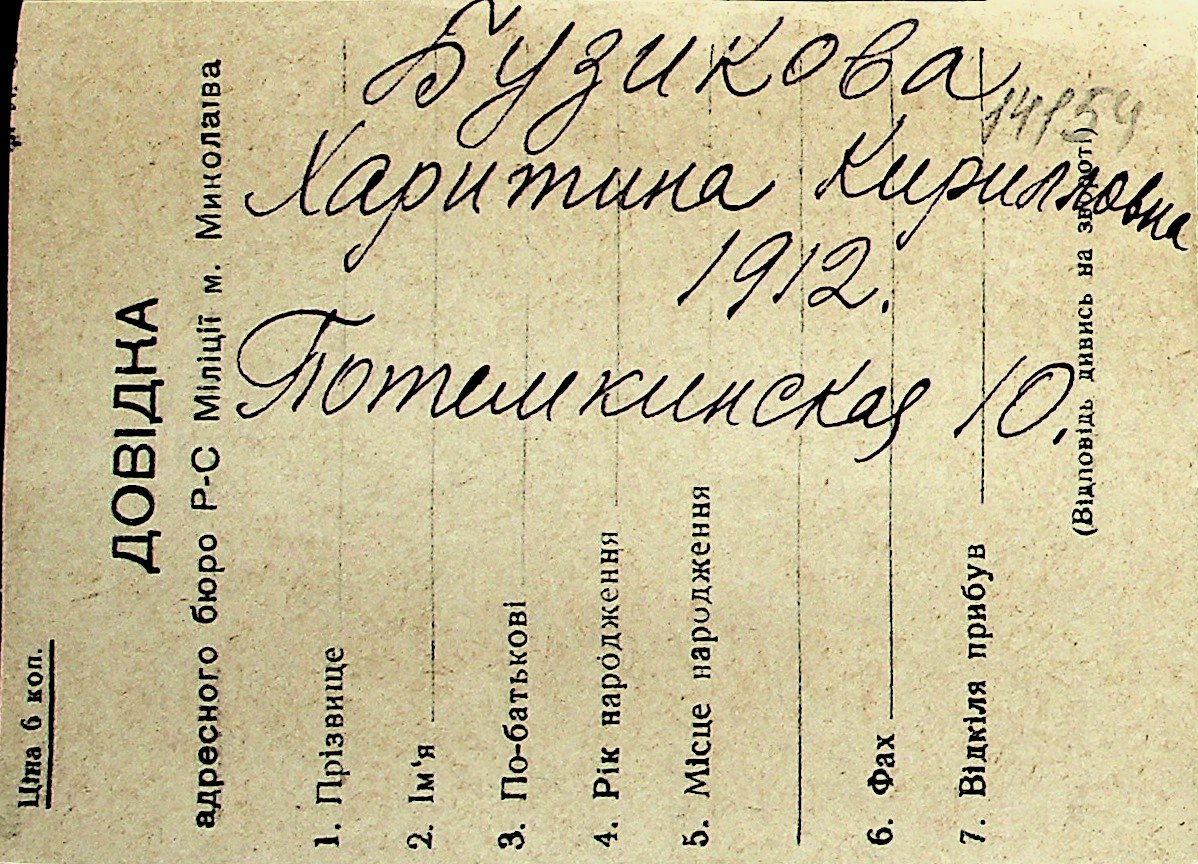 Ціна 6 коп.
ДОВІДКА
адресного бюро Р-С Міліції м. Миколаїва
1. Прізвище
2. Ім'я
3. По-батькові
4. Рік народження
5. Місце народження
6. Фах
7. Відкіля прибув
(Відповідь дивись на звороті)
Бузикова
14154
Харитина Кирилловна
1912.
Потемкинская 10.